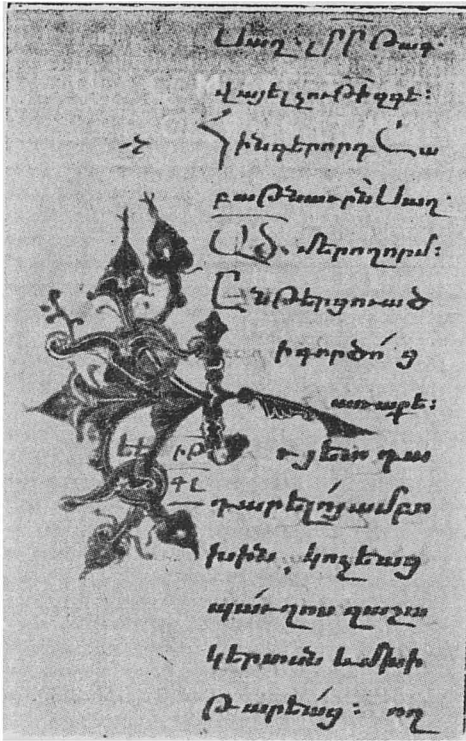 Սաղ. Թագ.
վայելչութի զգե։
Հինգերորդ Շա
բաթն աւրն Սաղ.
Ած. մերողորմ։
Ընթերցուած
ի գործոց
առաքե։
Եւ յետ դա
դարելոյ ամբո
խին, կոչեաց
պաւղոս զաշա
կերտսն եւ մխի
թարեաց։ ող
ԻԹ
ԳԼ